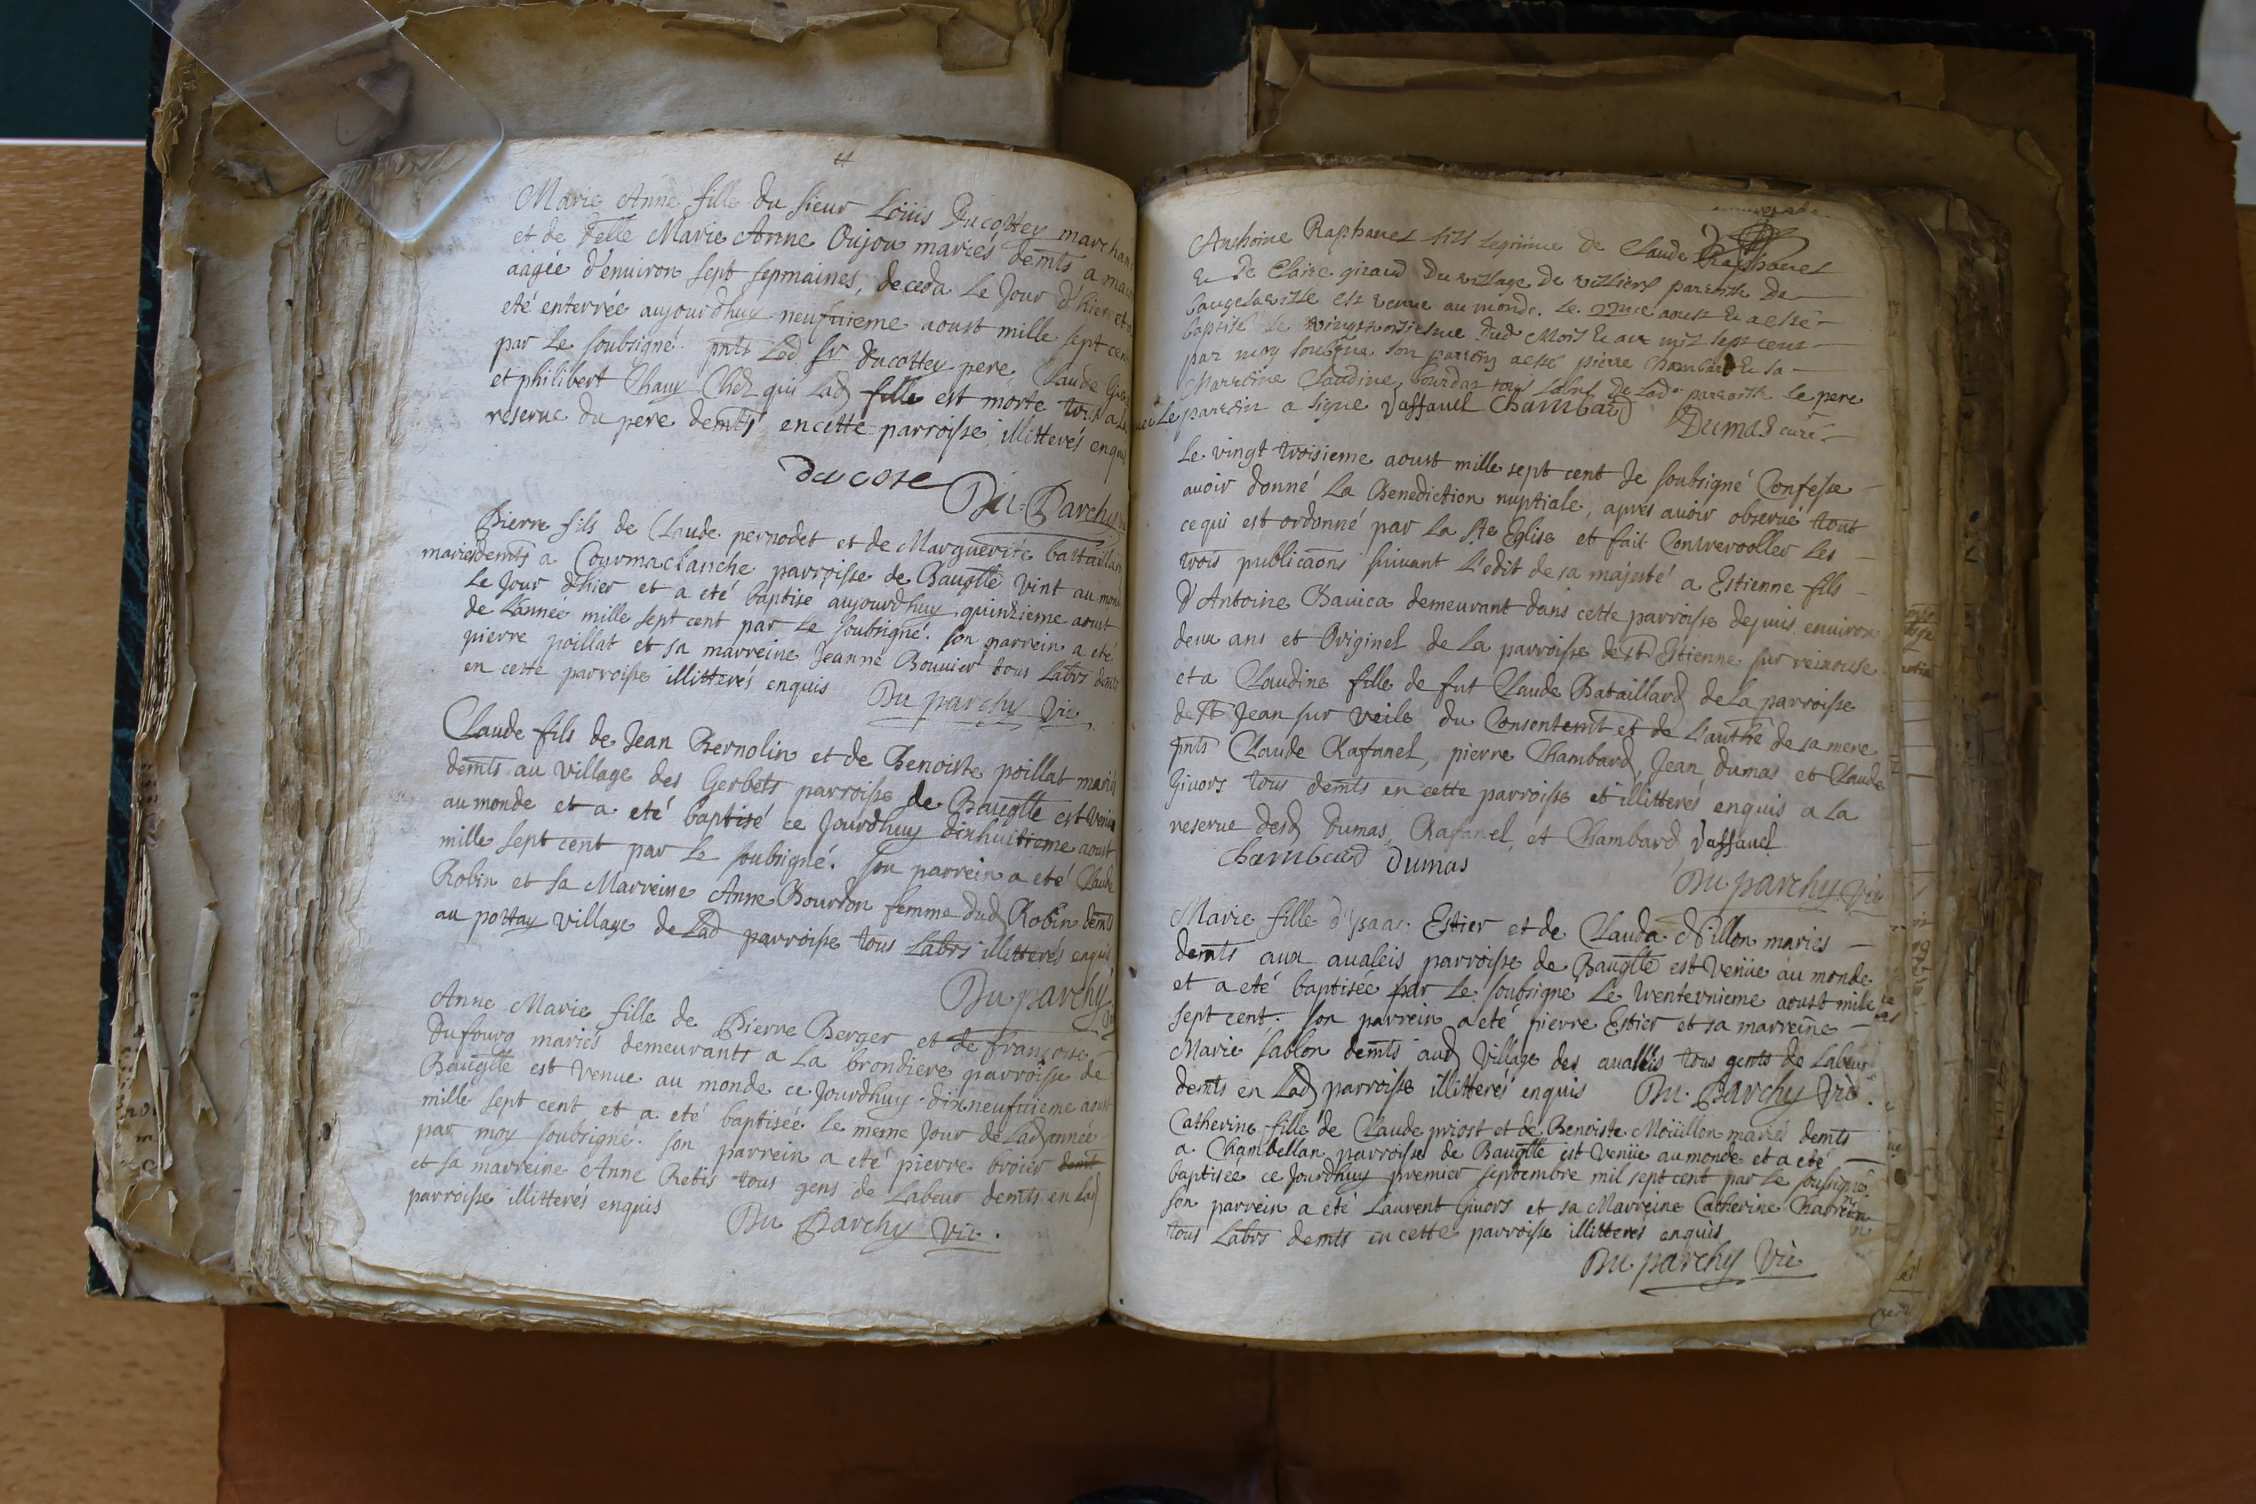 Marie Anne fille du sieur Loüis Ducottey marchan
et de delle Marie Anne Oujou mariés demts a
aagée d'environ sept sepmaines, deceda Le Jour d'hier et
eté enterrée aujourdhuy neufuieme aoust mille sept cen
par Le soubsigné. pnts Led sr Ducottey pere, Claude
et philibert Chauy Chéz qui Lad fille est morte
reserve du pere demts en cette parroisse illitterés enquis
ducote Du Parchy
Pierre fils de Claude pernodet et de Marguerite battaillard
mariés demts a Courmaclanche parroisse de Bauglle vint au mond
Le Jour d'hier et a eté baptisé aujourdhuy quindzieme aoust
de L'annee mille sept cent par Le soubsigné. son parrein a eté
pierre poillat et sa marreine Jeanne Bouvier tous Labrs demts
en cette parroisse illitterés enquis Du parchy Vic.
Claude fils de Jean Bernolin et de Benoiste poillat mariés
demts au village des Gerbets parroisse de Bauglle est venu
au monde et a eté baptisé ce Jourdhuy dixhuitieme aoust
mille sept cent par Le soubsigné. son parrein a eté Claude
Robin et sa Marreine Anne Bourdon femme dud Robin demts
au portay village de Lad parroisse tous Labrs illitterés enquis
Du parchy
Anne Marie fille de Pierre Berger et de françoise
Dufourg mariés demeurants a La brondiere parroisse de
Bauglle est venue au monde ce Jourdhuy dixneufuieme aoust
mille sept cent et a eté baptisée Le meme Jour de Lad année
par moy soubsigné. son parrein a eté pierre broier demt
et sa marreine Anne Retis tous gens de Labeur demts en Lad
parroisse illitterés enquis Du Parchy Vic.
Anthoine Raphanel fils legitime de Claude Raphanel
et de Claire giraud du village de villiers paroisse de
baugelaville est venue au monde. le aoust et a esté
baptisé le vingt troisiesme dud Mois et an mil sept cent
par moy soubsigné son parrein a esté pierre Chambard et sa
Marreine Claudine bourdaz tous labrs de Lad. paroisse le pere
et Le parrein a signe raffanel Chambard Dumas curé
Le vingt troisieme aoust mille sept cent Je soubsigné Confesse
avoir donné La Benediction nuptiale, apres avoir observé tout
ce qui est ordonné par La Ste Eglise et fait Controroller Les
trois publicaons suivant L'edit de sa majesté a Estienne fils
D'Antoine Bavica demeurant dans cette parroisse depuis environ
deux ans et Originel de La parroisse de St Estienne sur reixouse
et a Claudine fille de fut Claude Bataillard de La parroisse
de St Jean sur Veile du Consentemt et de L'authé de sa mere
pnts Claude Rafanel, pierre Chambard, Jean dumas et Claude
Givors tous demts en cette parroisse et illitterés enquis a La
reserve desd Dumas, Rafanel, et Chambard raffanel
Chambard Dumas
Du parchy Vic
Marie fille d'ysaac Estier et de Clauda Millon mariés
demts aux avaleis parroisse de Bauglle est venüe au monde
et a eté baptisée par Le soubsigne Le trenteunieme aoust mille
sept cent. son parrein a eté pierre Estier et sa marreine
Marie sablon demts aud Village des avalleis tous gents de Labeur
demts en Lad parroisse illitterés enquis Du Parchy Vic.
Catherine fille de Claude priost et de Benoiste Moüillon mariés demts
a Chambellan parroisse de Bauglle est venüe au monde et a eté
baptisée ce Jourdhuy premier septembre mil sept cent par Le soussigné
son parrein a été Laurent Givors et sa Marreine Catherine
tous Labrs demts en cette parroisse illitterés enquis
Du parchy Vic